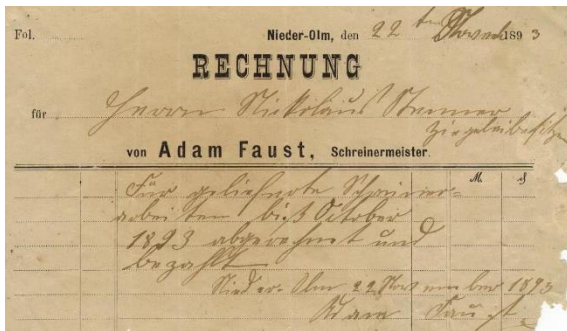 Fol.
Nieder-Olm, den 22ten Novemb 1893
RECHNUNG
für Herrn Nickolaus Stenner
Ziegeleibesitzer
von Adam Faust, Schreinermeister.
M. ₰
Für geliefertte Schreiner-
arbeiten biß October
1893 abgerechnet und
bezahlt
Nieder-Olm 22 November 1893
Adam Faust